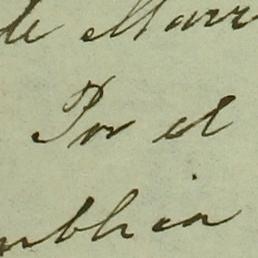 de Marr
Por el